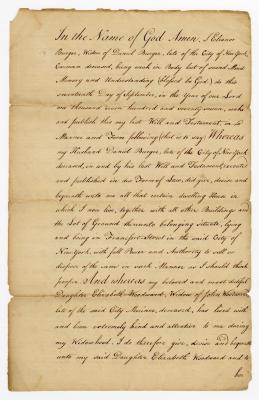 In the Name of God Amen, I Eleanor
Burger, Widow of Daniel Burger, late of the City of NewYork,
deceased, being weak in Body but of sound Mind
Memory and Understanding (blessed be God) do this
seventeenth Day of September, in the Year of our Lord
one thousand seven hundred and seventy seven, make
and publish this my last Will and Testament, in
Manner and Form following (that is to say) Whereas
my Husband Daniel Burger, late of the City of NewYork
deceased, in and by his last Will and Testament, executed
and published in due Form of Law, did give, devise and
bequeath unto me all that certain dwelling House in
which I now live, together with all other Buildings and
the Lot of Ground thereunto belonging situate, lying
and being in Frankfort Street in the said City of
NewYork, with full Power and Authority to sell or
dispose of the same in such Manner as I should think
proper And whereas my beloved and most dutiful
Daughter Elizabeth Woodward, Widow of John Woodward
late of the said City Mariner, deceased, has lived with
and been extremely kind and attentive to me during
my Widowhood. I do therefore give, devise and bequeath
unto my said Daughter Elizabeth Woodward and to
her